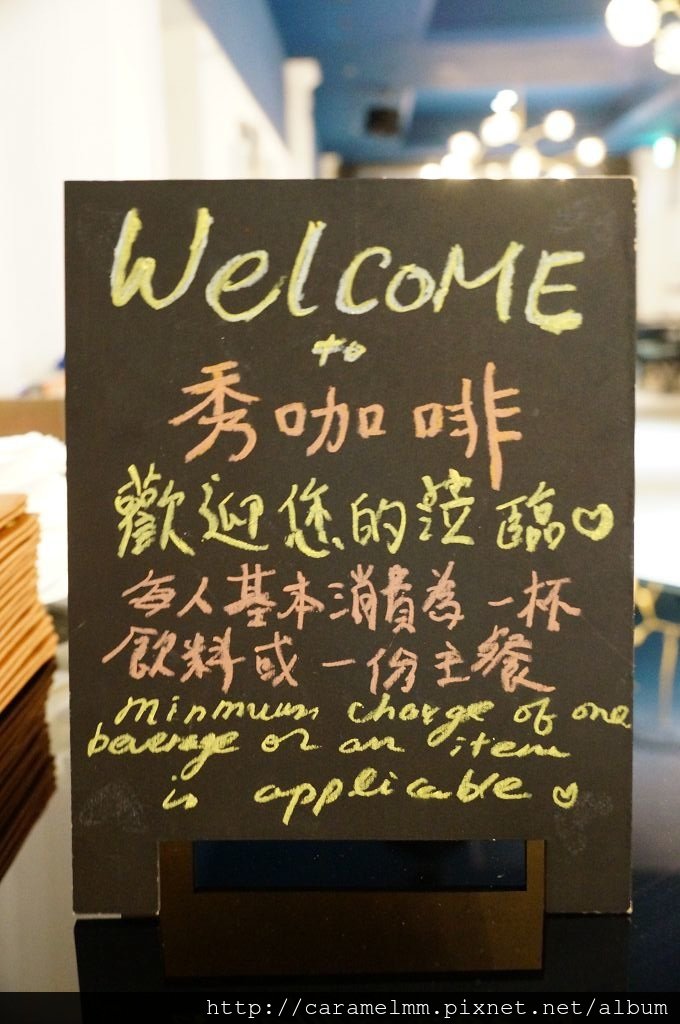 WelCOME
to
秀咖啡
歡迎您的蒞臨♡
每人基本消費為一杯
飲料或一份主餐
minmum charge of one
beverage or an item
is applicable ♡
http://caramelmm.pixnet.net/album